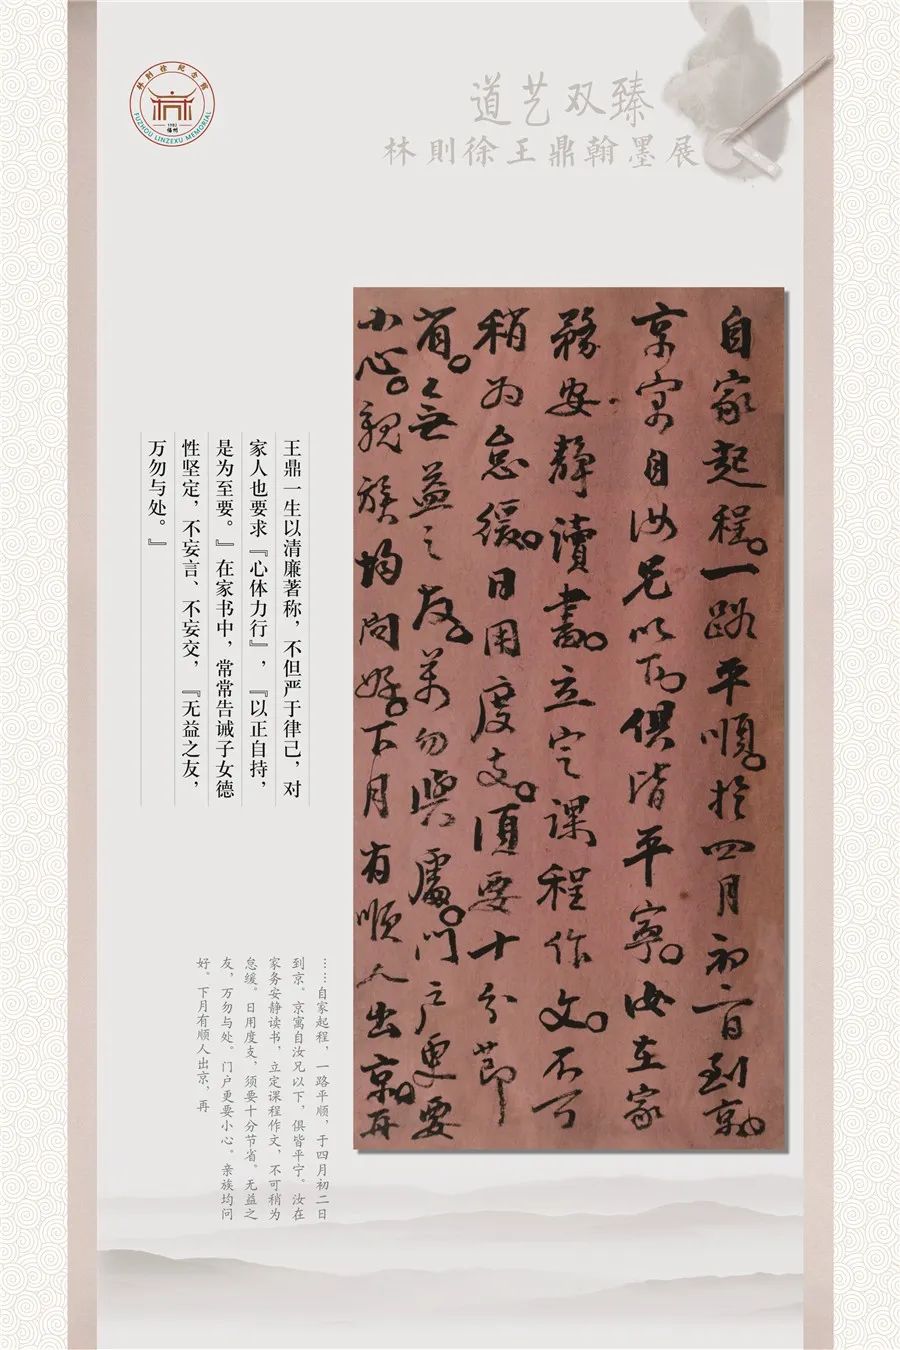 林则徐纪念馆
1982
福州
FUZHOU LINZEXU MEMORIAL
道艺双臻
林則徐王鼎翰墨展
自家起程。一路平順。於四月初二日到京。
京寓自汝兄以下俱皆平寧。汝在家
務安靜讀書。立定課程作文。不可
稍为怠緩。日用度支。須要十分節
省。無益之友。萬勿與處。門户更要
小心。親族均问好。下月有順人出京。再
王鼎一生以清廉著称，不但严于律己，对
家人也要求『心体力行』，『以正自持，
是为至要。』在家书中，常常告诫子女德
性坚定，不妄言、不妄交，『无益之友，
万勿与处。』
……自家起程，一路平顺，于四月初二日
到京。京寓自汝兄以下，俱皆平宁。汝在
家务安静读书，立定课程作文，不可稍为
怠缓。日用度支，须要十分节省。无益之
友，万勿与处。门户更要小心。亲族均问
好。下月有顺人出京，再